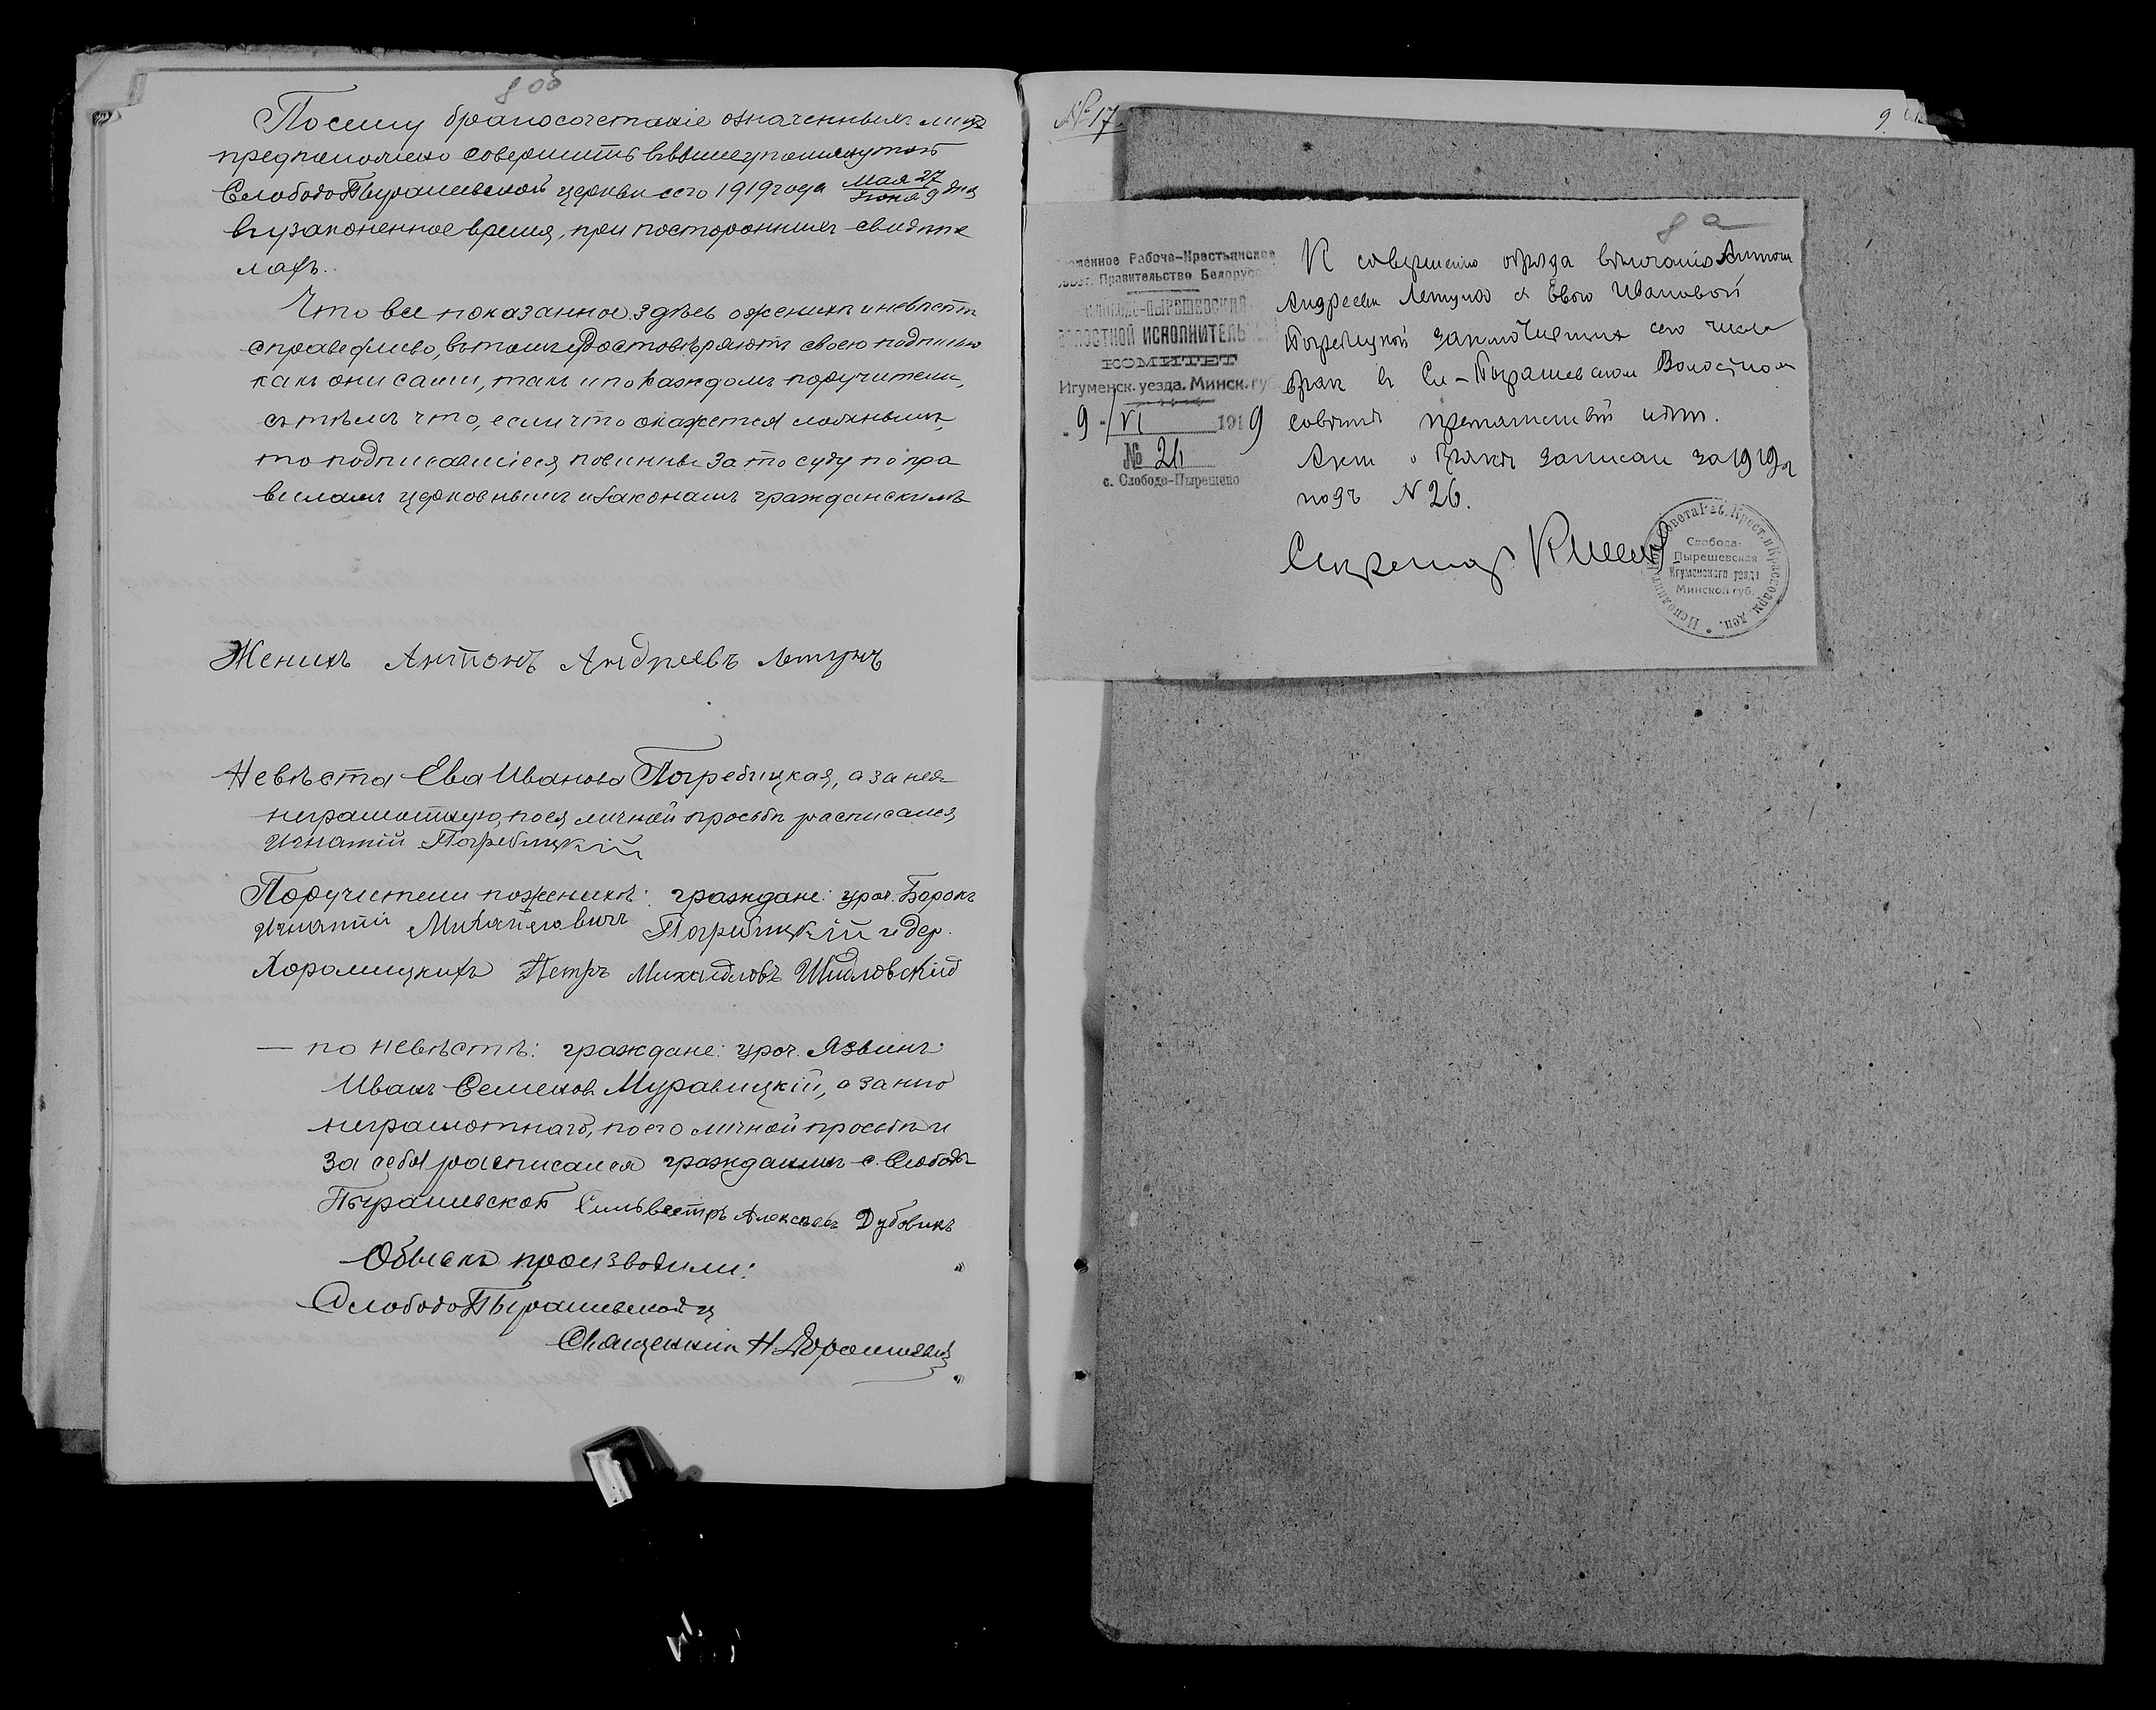 8 об
Посему бракосочетаніе означенныхъ лицъ
предположено совершить въ вышеупомянутой
Слободо Пырашевской церкви сего 1919 года Мая 27/Іюня 9 дня
въ узаконенное время, при постороннихъ свидѣте
ляхъ.
Что все показанное здѣсь о женихѣ и невѣстѣ
справедливо, въ томъ удостовѣряютъ своею подписью
какъ они сами, такъ и по каждомъ поручители,
съ тѣмъ что, если что окажется ложнымъ,
то подписавшіеся повинны за то суду по пра
виламъ церковнымъ и законамъ гражданскимъ
Женихъ Антонъ Андреевъ Летунъ
Невѣста Ева Иванова Погребицкая, а за нея
неграмотную, по ея личной просьбѣ расписался
Игнатій Погребицкій
Поручители по женихѣ: граждане: уроч. Борокъ
Игнатій Михайловичъ Погребицкій и дер.
Хоромицкихъ Петръ Михайловъ Шидловскій
— по невѣстѣ: граждане: уроч. Язвинъ
Иванъ Семеновъ Муравицкій, а за него
неграмотнаго, по его личной просьбѣ и
за себя расписался гражданинъ с. Слободы
Пырашевской Сильвестръ Алексѣевъ Дубовикъ
Обыскъ производили:
Слободо Пырашевской ц
Священникъ Н.
№ 17.
9
8 а
Временное Рабоче-Крестьянское
Совет. Правительство Белорус
СЛОБОДО-ПЫРЕШЕВСКИЙ
ВОЛОСТНОЙ ИСПОЛНИТЕЛЬ
КОМИТЕТ
Игуменск. уезда, Минск. губ.
9 / VI 1919
№ 26
с. Слободо-Пырешево
К совершенію обряда вѣнчанія Антона
Андреева Летуна с Евою Ивановой
Погребицкой заключившихъ сего числа
брак в Сл-Пырашевском Волостном
совѣтѣ препятствій нѣт.
Акт о бракѣ записан за 1919 г
подъ N 26.
Секретар
Исполнит. Ком. Совета Раб. Крест. и Красноарм. деп.
Слобода-
Пырешевская
Игуменского уезда
Минской губ.